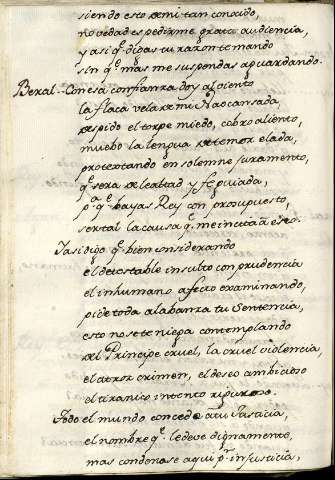 siendo esto de mi tan conoçido,
no vedad es pedirme grata audiencia,
y asi q.e digas tu razon te mando
sin q.e mas me suspendas aguardando.
Beral - Con esa confianza doy al viento
la flaca vela de mi Nao cansada
despido el torpe miedo, cobro aliento,
muebo la lengua de temor elada,
protextando en solemne juramento,
q.e sera de lealtad y fe guiada,
p.a q.e hayas Rey con presupuesto,
ser tal la causa q.e me incita á eso.
Y asi digo q.e bien considerando
el detestable insulto con prudencia
el inhumano afecto examinando,
pide toda alabanza tu Sentencia,
esto no se te niega contemplando
del Principe cruel, la cruel violencia,
el atroz crimen, el deseo ambicioso
el tiranico intento
Todo el mundo concede a tu Justicia,
el nombre q.e le debe dignamente,
mas condenase aqui p.r injusticia,